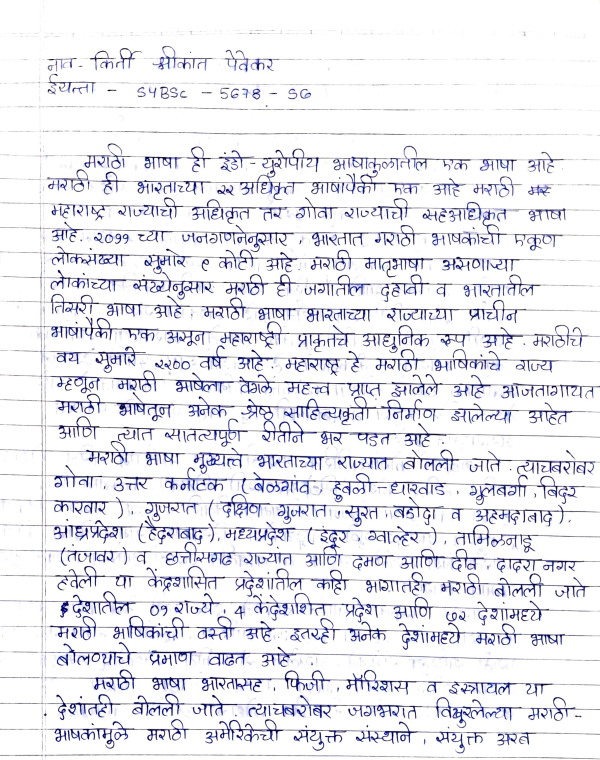 नाव - किर्ती श्रीकांत पेवेकर
ईयत्ता - SYBSc - 5678 - SG
मराठी भाषा ही इंडो - युरोपीय भाषाकुळातील एक भाषा आहे.
मराठी ही भारताच्या २२ अधिकृत भाषांपैकी एक आहे मराठी
महाराष्ट्र राज्याची अधिकृत तर गोवा राज्याची सहअधिकृत भाषा
आहे. २०११ च्या जनगणनेनुसार, भारतात मराठी भाषकांची एकूण
लोकसंख्या सुमारे ९ कोटी आहे. मराठी मातृभाषा असणाऱ्या
लोकांच्या संख्येनुसार मराठी ही जगातील दहावी व भारतातील
तिसरी भाषा आहे. मराठी भाषा भारताच्या राज्याच्या प्राचीन
भाषांपैकी एक असून महाराष्ट्री प्राकृतचे आधुनिक रूप आहे. मराठीचे
वय सुमारे २२०० वर्ष आहे. महाराष्ट्र हे मराठी भाषिकांचे राज्य
म्हणून मराठी भाषेला वेगळे महत्त्व प्राप्त झालेले आहे. आजतागायत
मराठी भाषेतून अनेक श्रेष्ठ साहित्यकृती निर्माण झालेल्या आहेत
आणि त्यात सातत्यपूर्ण रीतीने भर पडत आहे.
मराठी भाषा मुख्यत्वे भारताच्या राज्यात बोलली जाते. त्याचबरोबर
गोवा, उत्तर कर्नाटक (बेळगांव, हुबली - धारवाड, गुलबर्गा, बिदर
कारवार), गुजरात (दक्षिण गुजरात, सुरत, बडोदा व अहमदाबाद),
आंध्रप्रदेश (हैदराबाद), मध्यप्रदेश (इंदूर, ग्वाल्हेर), तामिळनाडू
(तंजावर) व छत्तीसगढ राज्यांत आणि दमण आणि दीव, दादरा नगर
हवेली या केंद्रशासित प्रदेशांतील काही भागातही मराठी बोलली जाते
देशातील ०१ राज्ये, 4 केंदेशाशित प्रदेश आणि ७२ देशांमध्ये
मराठी भाषिकांची वस्ती आहे. इतरही अनेक देशांमध्ये मराठी भाषा
बोलण्याचे प्रमाण वाढत आहे.
मराठी भाषा भारतासह, फिजी, मॉरिशस व इस्त्रायल या
देशांतही बोलली जाते. त्याचबरोबर जगभरात विखुरलेल्या मराठी-
भाषकांमुळे मराठी अमेरिकेची संयुक्त संस्थाने, संयुक्त अरब